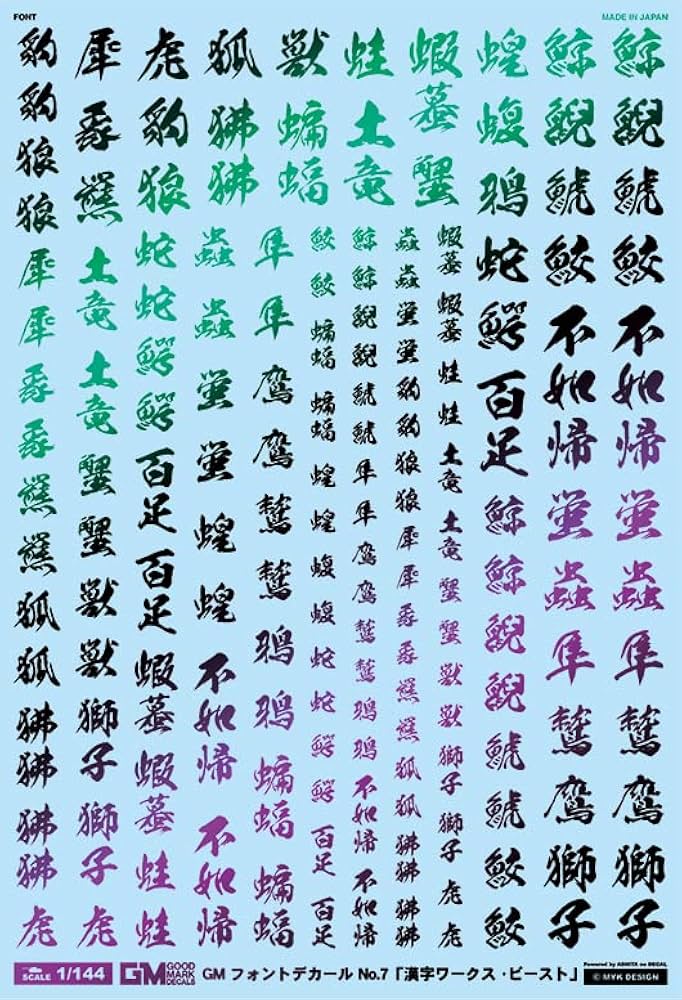 FONT
MADE IN JAPAN
豹豹狼狼犀犀羆羆狐狐狒狒狒狒虎
犀羆土竜土竜蟹蟹獣獣獅子獅子虎
虎豹狼蛇蛇鰐鰐百足百足蝦蟇蝦蟇蛙蛙
狐狒狒蟲蟲螢螢蝗蝗不如帰不如帰
獣蝙蝠隼隼鷹鷹鷲鷲鴉鴉蝙蝠蝙蝠
蛙土竜
鮫鮫蝙蝠蝙蝠蝗蝗蝮蝮蛇蛇鰐鰐百足百足
鯨鯨鯢鯢鯱鯱隼隼鷹鷹鷲鷲鴉鴉不如帰不如帰
蝦蟇蟹
蟲蟲螢螢豹豹狼狼犀犀羆羆狐狐狒狒狒狒
蝦蟇蝦蟇蛙蛙土竜土竜蟹蟹獣獣獅子獅子虎虎
蝗蝮鴉蛇鰐百足鯨鯨鯢鯢鯱鯱鮫鮫
鯨鯢鯱鮫不如帰螢蟲隼鷲鷹獅子
鯨鯢鯱鮫不如帰螢蟲隼鷲鷹獅子
SCALE 1/144
GM GOOD MARK DECALS
GM フォントデカール No.7「漢字ワークス・ビースト」
© MYK DESIGN